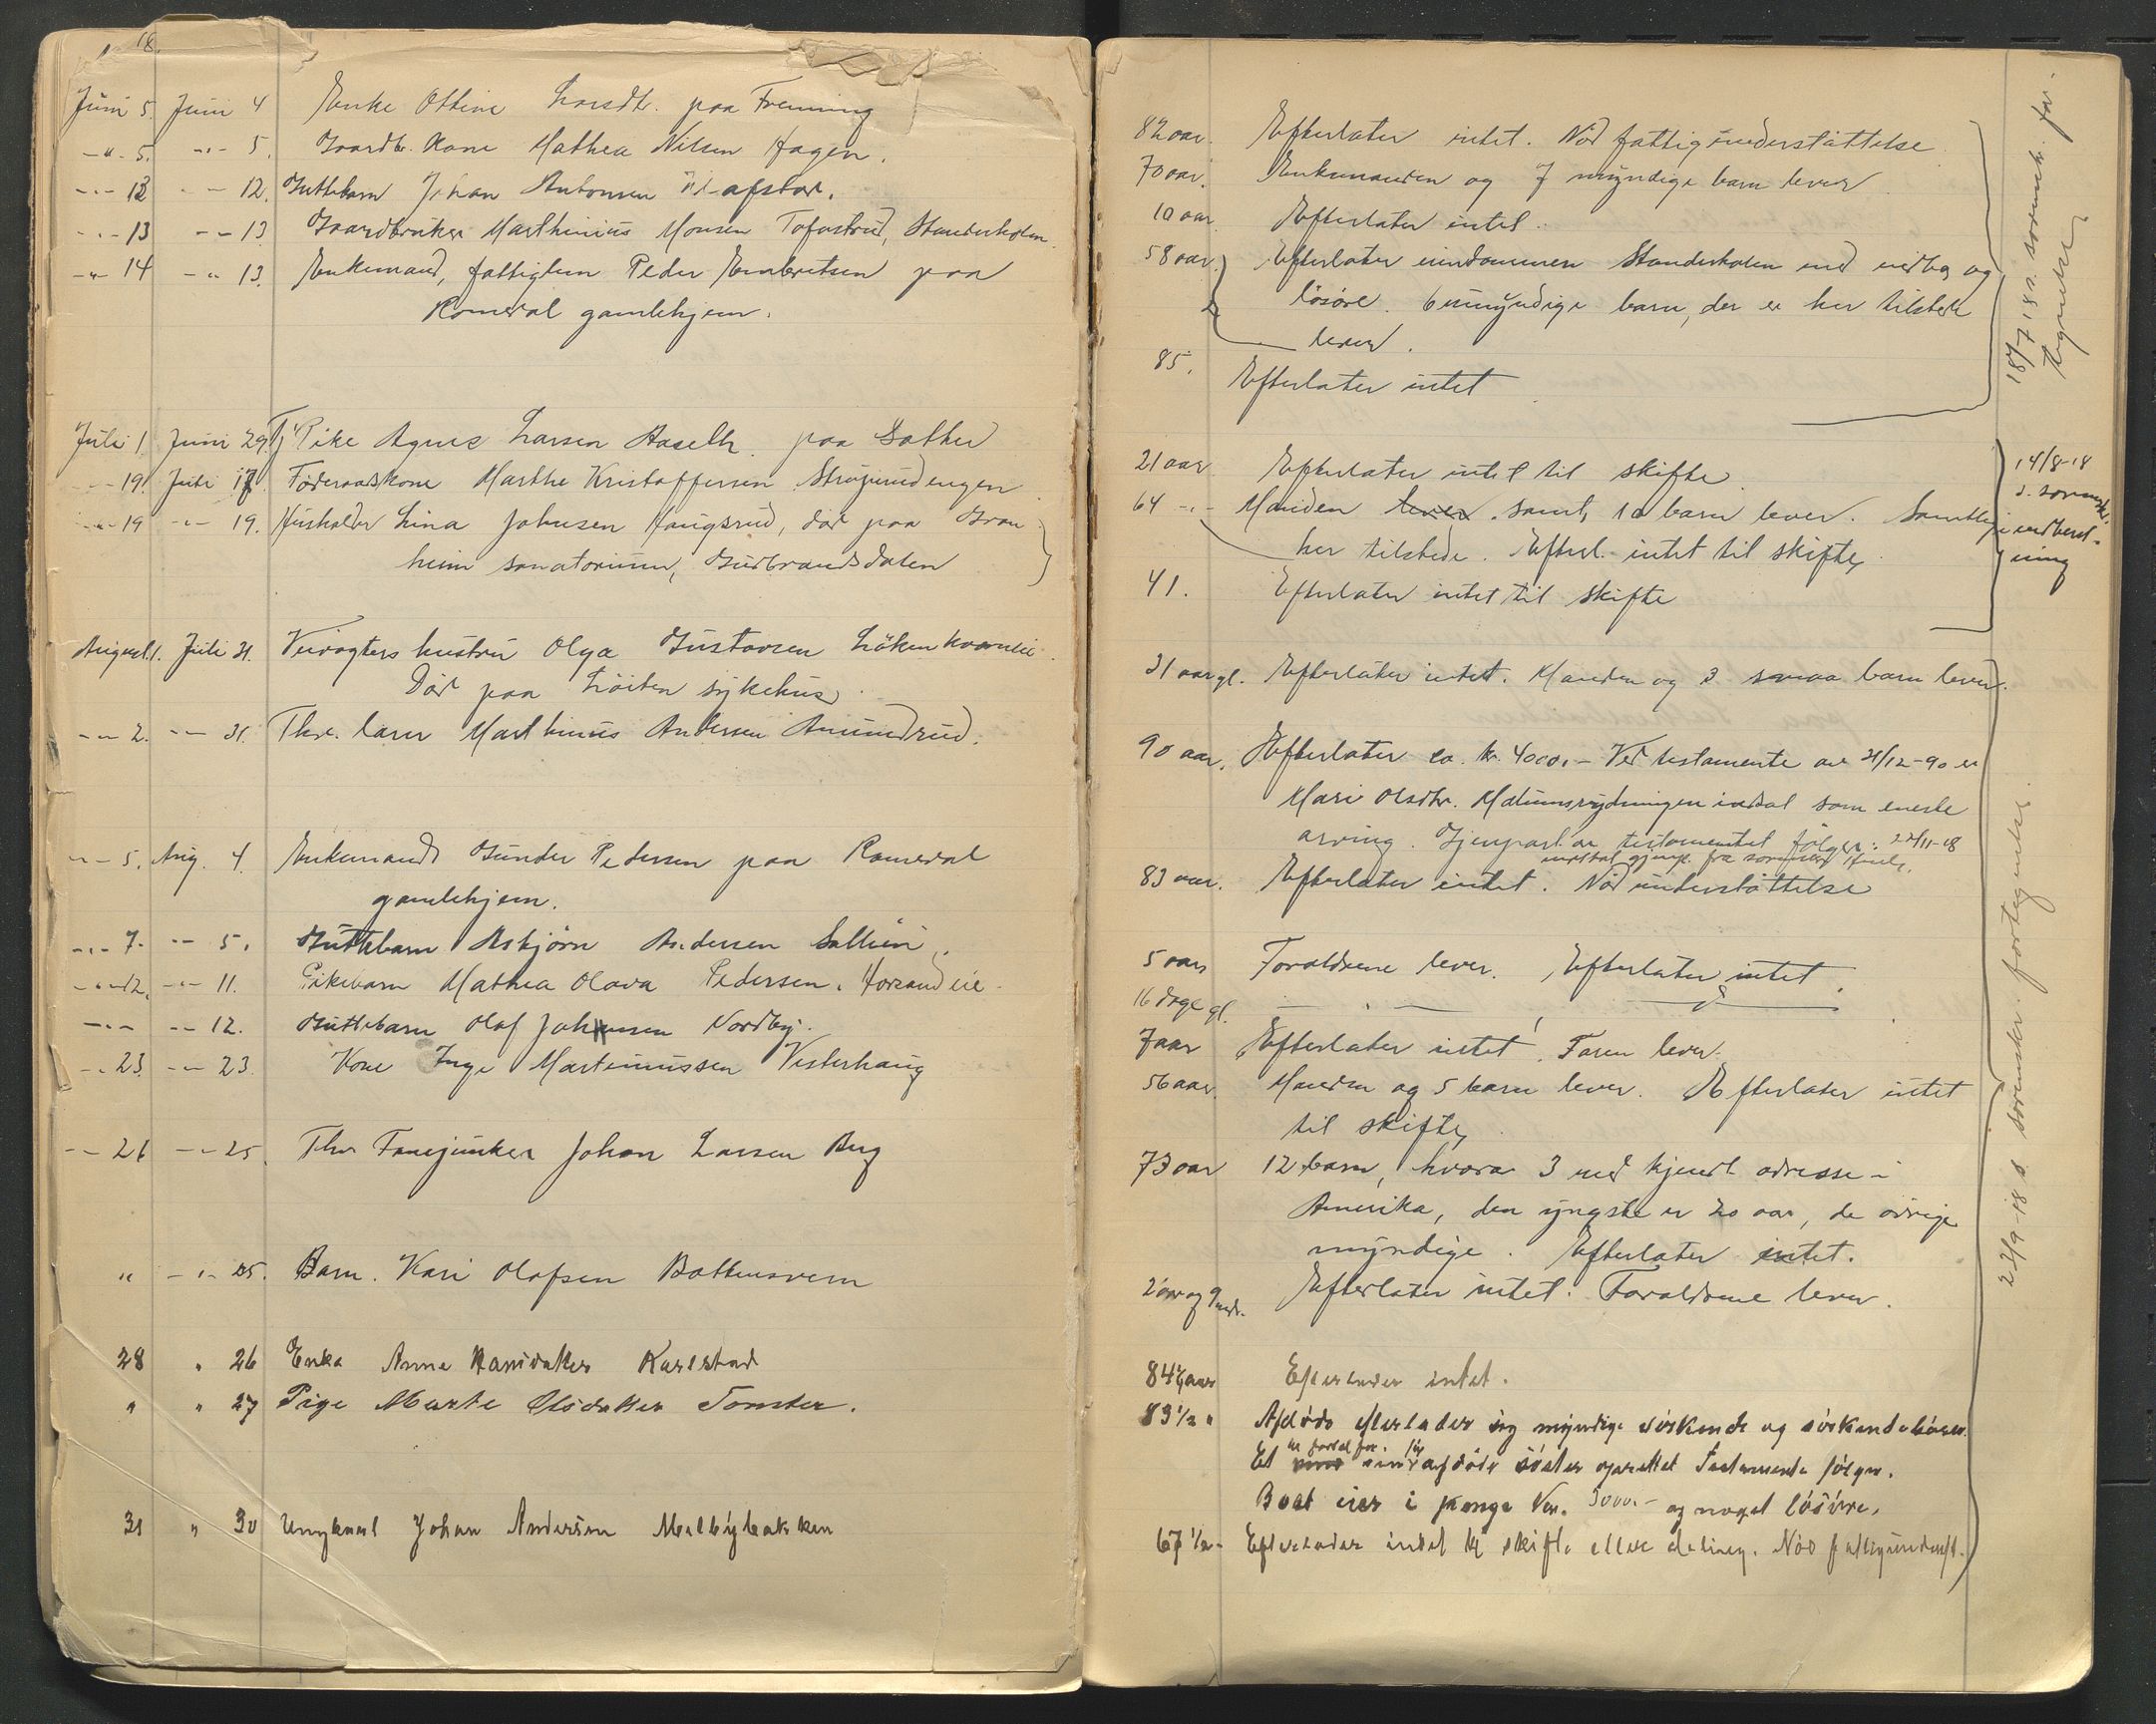 18.
Juni 5. Juni 4 Enke Ottine Larsdtr. paa Frenning
-"- 5. -"- 5. Gaardbr. Kone Mathea Nilsen Hagen.
-"- 12 - - 12. Guttebarn Johan Antonsen
-"- 13 -"- 13 Gaardbruker Marthinius Monsen Tofastrud, Standerholen.
-"- 14 -"- 13. Enkemand, fattiglem Peder Embretsen paa
Romedal gamlehjem.
Juli 1. Juni 29. Tj. Pike Agnes Larsen Haselb. paa Sæther
- 19. Juli 17. Føderaadskone Marthe Kristoffersen Strøjerudengen
-"- 19 -"- 19. Husholder Lina Johnsen Haugsrud, død paa Gran
heim sanatorium, Gudbrandsdalen
August 1. Juli 31. Veivogters hustru Olga Gustavsen Løken
Død paa Løiten sykehus
-"- 2. -"- 31. Fhv. lærer Marthinus Andersen Amundrud.
-"- 5. Aug. 4. Enkemand Gunder Pedersen paa Romedal
gamlehjem.
-"- 7. -"- 5. Guttebarn Asbjørn Andersen
-"- 12. -"- 11. Pikebarn Mathea Olava Pedersen.
-"- -"- 12. Guttebarn Olaf Johansen Nordby.
-"- 23. -"- 23. Kone Inga Martinussen Vesterhaug
-"- 26 -"- 25. Fhv. Fanejunker Johan Larsen Aug
" -"- 25. Barn. Kari Olafsen
28 " 26 Enka Anne Hansdatter Karlstad
" " 27 Pige Marte Olsdatter Tomter.
31 " 30 Ungkarl Johan Andersen Melbybakken
82 aar. Efterlater intet. Nød fattigunderstøttelse
70 aar. Enkemanden og 7 myndige barn lever
10 aar Efterlater intet.
58 aar. Efterlater eiendommen Standerholen med og
løsøre. 6 umyndige barn, der er her tilstede
lever.
85. Efterlater intet
21 aar Efterlater intet til skifte
64 -"- Manden lever. samt 10 barn lever. Samtlige
her tilstede. Efterl. intet til skifte
41. Efterlater intet til skifte
31 aar gl. Efterlater intet. Manden og 3 smaa barn lever.
90 aar. Efterlater ca. kr. 4000.- Ved testamente av 21/12-90 er
Mari Olsdtr. indsat som eneste
arving. Gjenpart av testamentet følger. 22/11-18
83 aar. Efterlater intet. Nød understøttelse
5 aar Foreldrene lever. Efterlater intet.
16 dage gl.
7 aar Efterlater intet. Faren lever.
56 aar. Manden og 5 barn lever. Efterlater intet
til skifte
73 aar 12 barn, hvorav 3 med kjendt adresse i
Amerika, den yngste er 20 aar, de øvrige
myndige. Efterlater intet.
2 aar og 9 mdr. Efterlater intet. Foreldrene lever.
84 aar Efterlader intet.
83 1/2 " Afdøde efterlader sig myndige søskende og søskendebørn.
Et afdøde søster oprettet Testamente følger.
Boet eier i penge Kr. 3000.- og noget løsøre.
67 1/2 - Efterlader intet til skifte eller deling. Nød fattigunderst.
18/7 18 s. sorensk. for
tegnelse
14/8-18
s. sorensk.
indberet-
ning
23/9-18 s. sorenskr. fortegnelse.